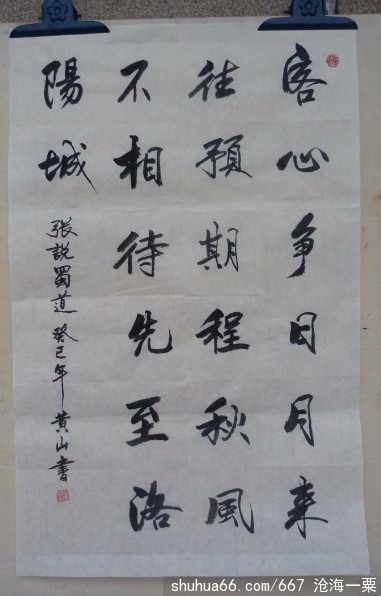 客心争日月来
往預期程秋風
不相待先至洛
陽城
張說蜀道 癸巳年 黄山書
shuhua66.com/667 沧海一粟